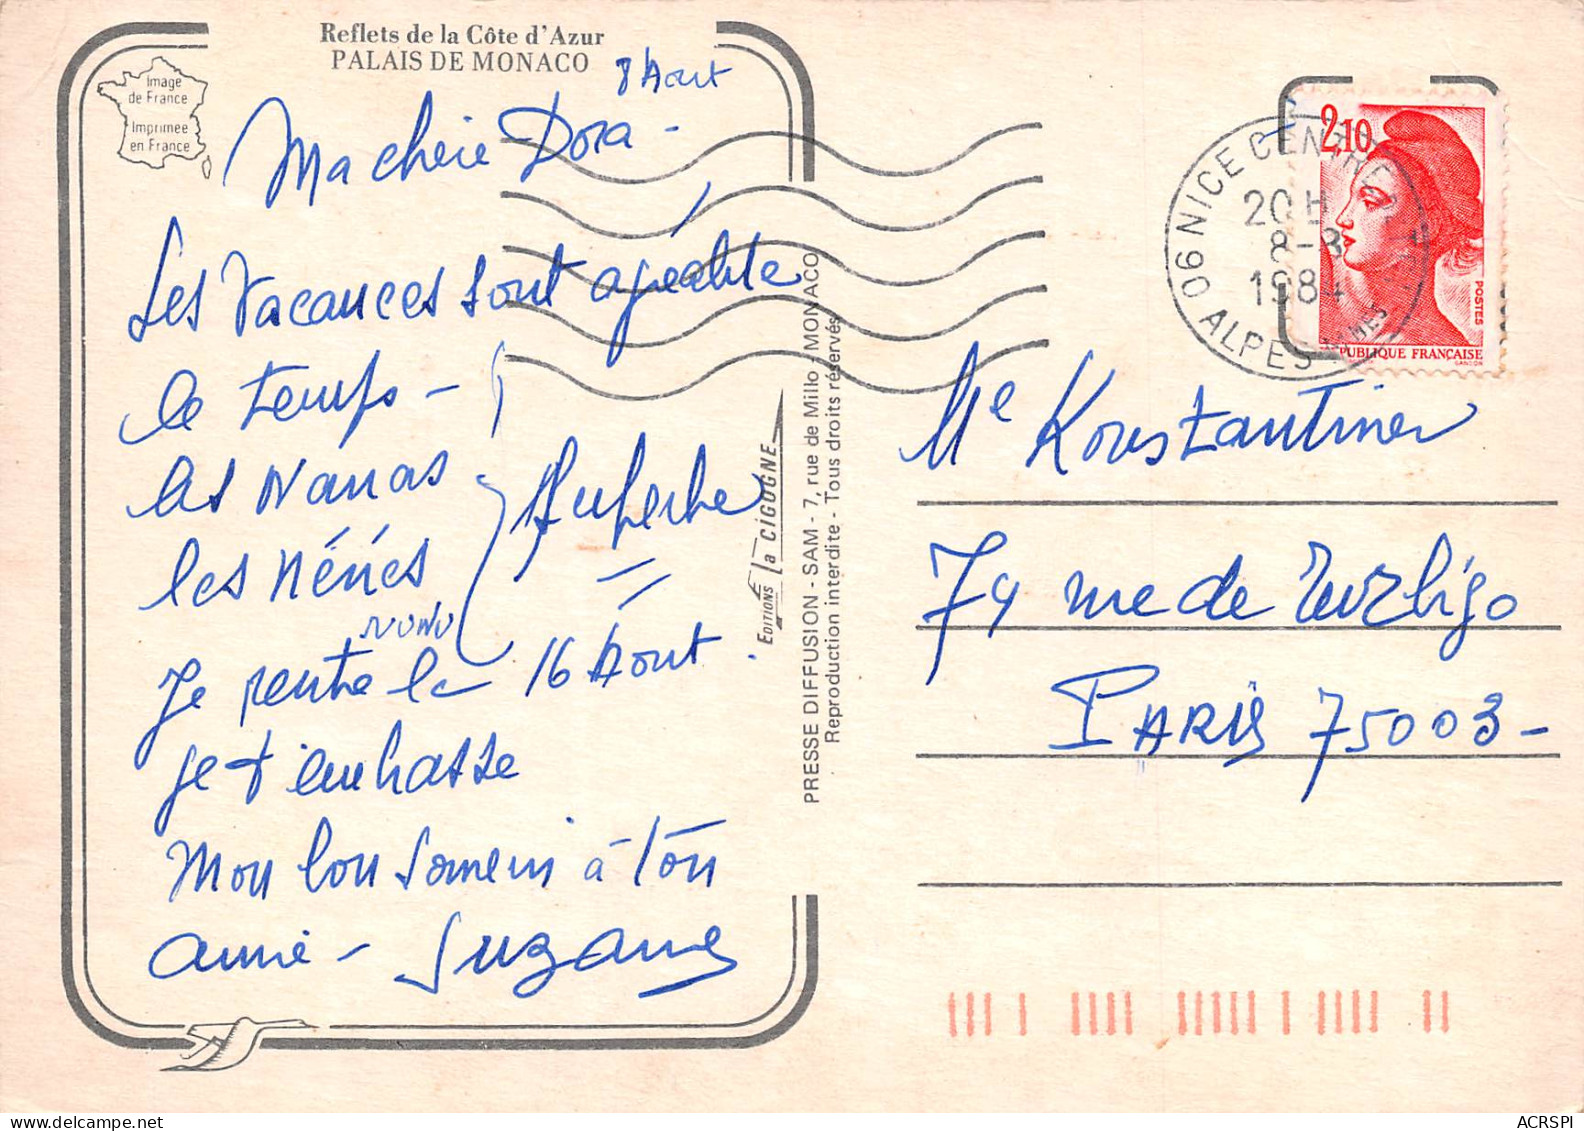 Reflets de la Côte d'Azur
PALAIS DE MONACO
Image
de France
Imprimée
en France
8 Aout
Ma chère Dora -
Les Vacances sont agréable
le temps -
les Nanas
les Nénés
NUNU
Superbe
Je rentre le 16 Aout.
je t'embrasse
Mon bon souvenir à ton
amie - Suzanne
EDITIONS la CIGOGNE
PRESSE DIFFUSION - SAM - 7, rue de Millo - MONACO
Reproduction interdite - Tous droits réservés
06 NICE CENTRE
20H
8-8
1984
ALPES
2,10
POSTES
PUBLIQUE FRANÇAISE
GANDON
Me Konstantiner
74 rue de Turbigo
PARIS 75003 -
ACRSPI